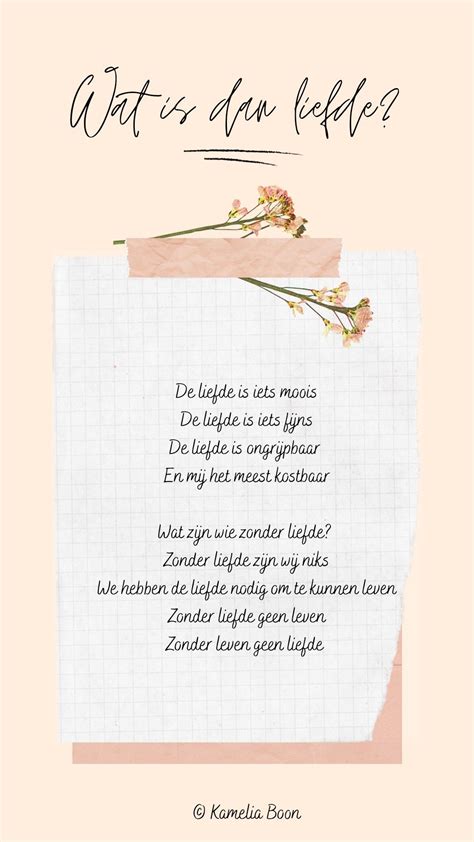 Wat is dan liefde?
De liefde is iets moois
De liefde is iets fijns
De liefde is ongrijpbaar
En mij het meest kostbaar
Wat zijn wie zonder liefde?
Zonder liefde zijn wij niks
We hebben de liefde nodig om te kunnen leven
Zonder liefde geen leven
Zonder leven geen liefde
© Kamelia Boon